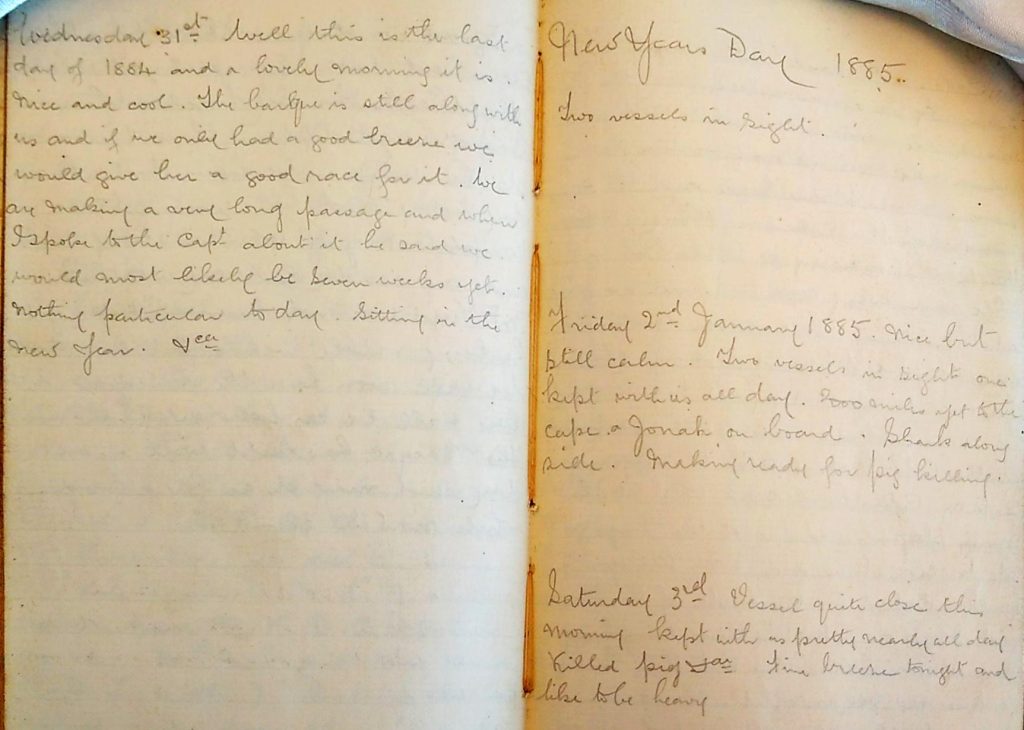 Wednesday 31st Well this is the last
day of 1884 and a lovely morning it is.
Nice and cool. The barque is still along with
us and if we only had a good breeze we
would give her a good race for it. We
are making a very long passage and when
I spoke to the Capt about it he said we
would most likely be seven weeks yet.
Nothing particular today. Sitting in the
New Year.
New Years Day 1885.
Two vessels in sight.
Friday 2nd January 1885. Nice but
still calm. Two vessels in sight one
kept with us all day. 2000 miles yet to the
cape. a Jonah on board. Shark along
side. Making ready for pig killing.
Saturday 3rd Vessel quite close this
morning kept with us pretty nearly all day
Killed pig Fine breeze tonight and
like to be heavy